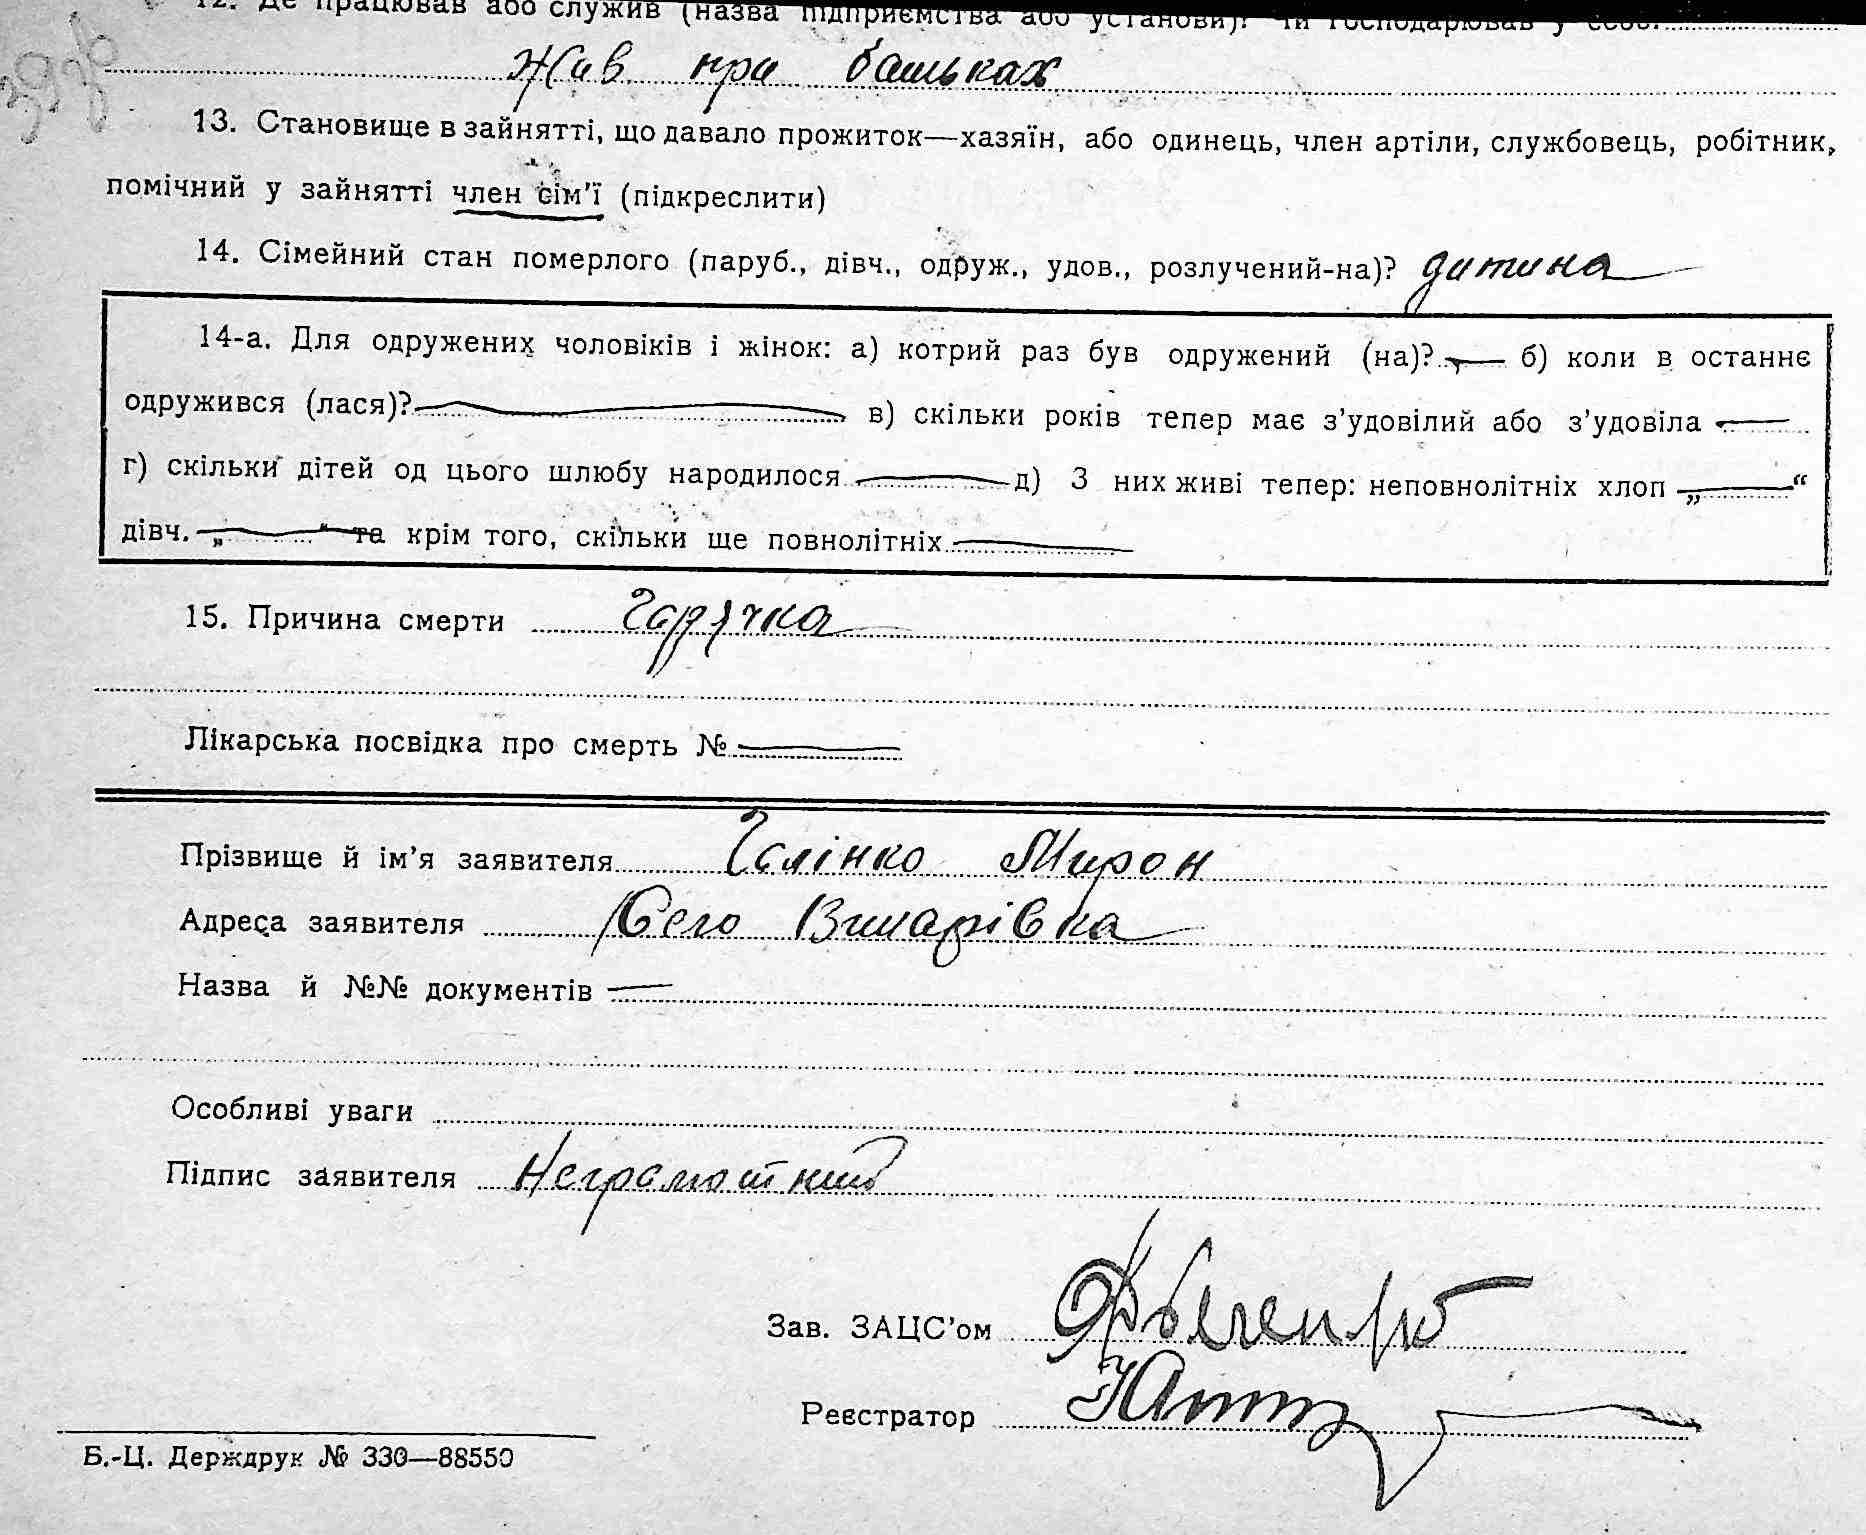 12. Де працював або служив (назва підприємства або установи)? Чи господарював у себе?
Жив при батьках
13. Становище в зайнятті, що давало прожиток—хазяїн, або одинець, член артіли, службовець, робітник,
помічний у зайнятті член сім'ї (підкреслити)
14. Сімейний стан померлого (паруб., дівч., одруж., удов., розлучений-на)? дитина
14-а. Для одружених чоловіків і жінок: а) котрий раз був одружений (на)? — б) коли в останнє
одружився (лася)? — в) скільки років тепер має з'удовілий або з'удовіла —
г) скільки дітей од цього шлюбу народилося — д) З них живі тепер: неповнолітніх хлоп „—“
дівч. „—“ та крім того, скільки ще повнолітніх —
15. Причина смерти Гарячка
Лікарська посвідка про смерть № —
Прізвище й ім'я заявителя Галінко Мирон
Адреса заявителя Село
Назва й №№ документів —
Особливі уваги
Підпис заявителя Неграмотний
Зав. ЗАЦС'ом
Реєстратор
Б.-Ц. Держдрук № 330—88550